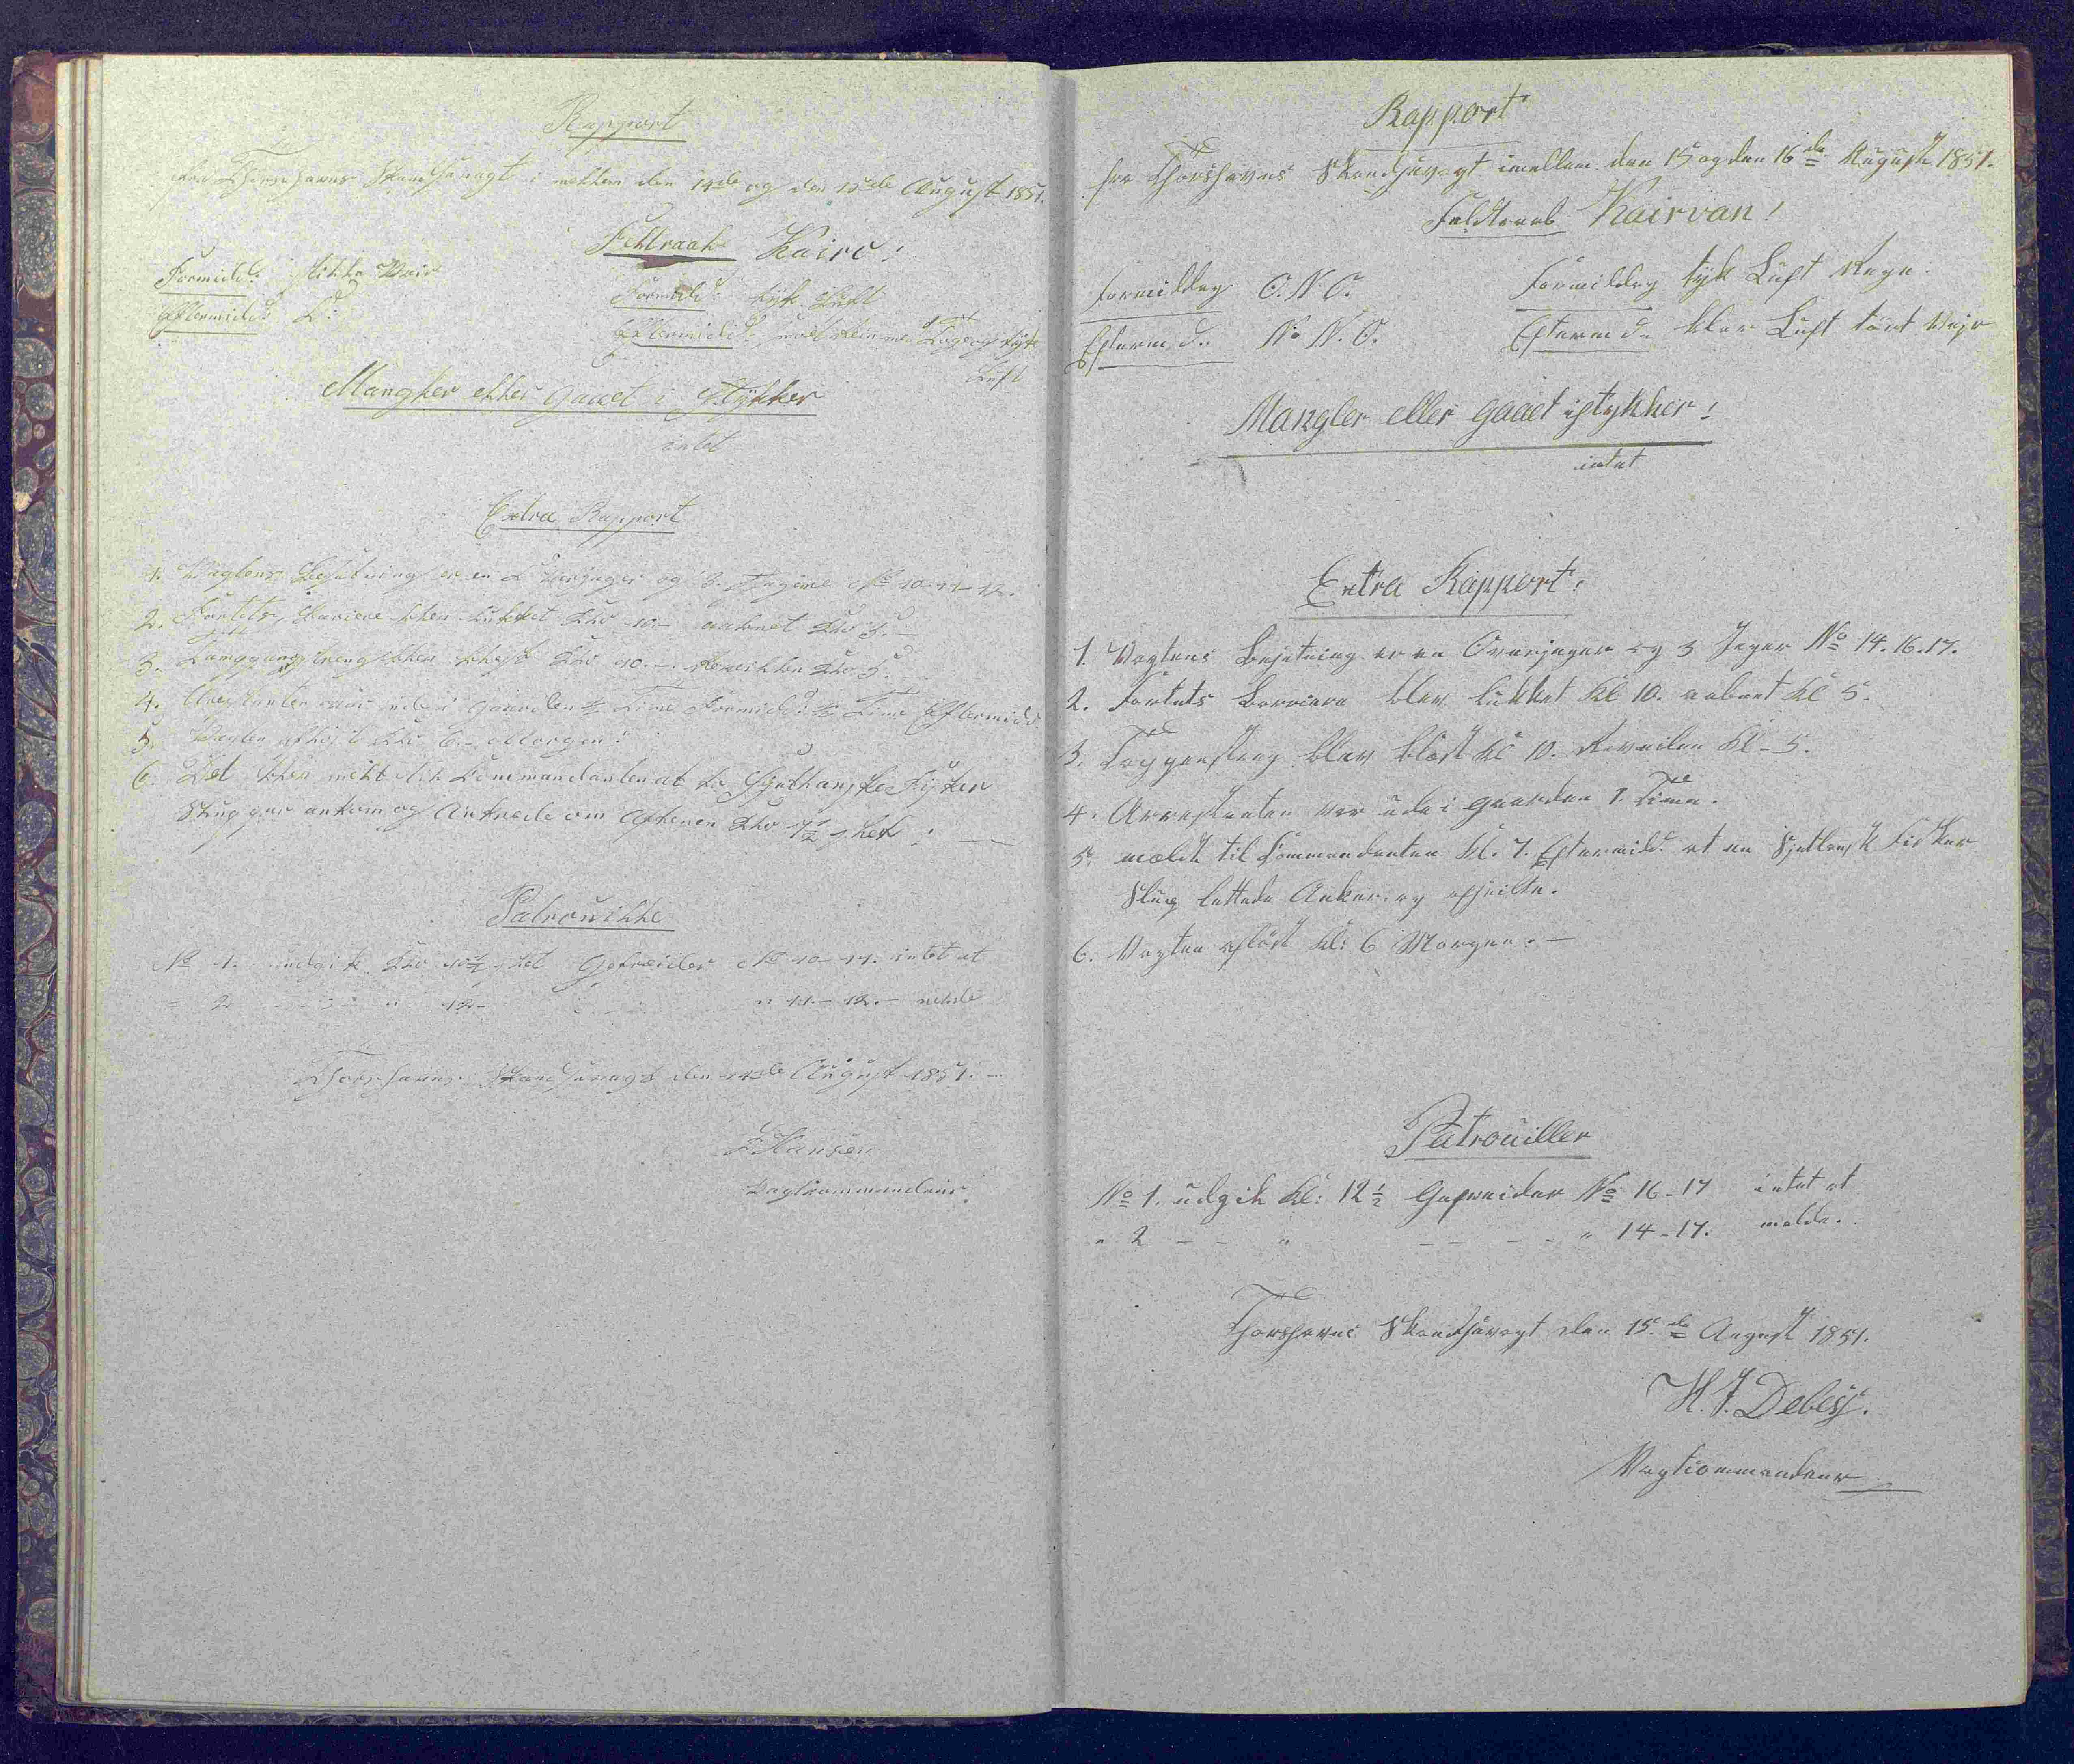 Rapport
fra Thorshavns Skandsevagt imellem den 14de og den 15de August 1851.
Feltraab Kairo!
Formidd: Stille Veir
Eftermidd: D:
Formidd: tyk Luft
Eftermidd: Taage og tyk
Luft
Mangler eller gaaet i Stykker
intet
Extra Rapport
1. Vagtens Besætning er en Overjæger og 3 Jægere No 10-11-12.
2. Fortets Bariere blev lukket Kl 10 - aabnet Kl 5. -
3. Tappenstreng blev blæst Kl 10. - Reveillen Kl 5.
4. Arestanten var ude i Gaarden ½ Time Formidd: ½ Time Eftermidd
5. Vagten afløst Kl 6 - Morgen:
6. Det blev meldt til Commandanten at to Fisker
Slupper ankom og Ankrede om Aftenen Kl 7½ Slet:
Patrouille
No 1. udgik Kl 10½ Slet Gefreider No 10-11. intet at
" 2 - - - " 12 - " 11 - 12. - melde
Thorshavns Skandsevagt den 14de August 1851. -
F Hansen
Vagtcommandeur.
Rapport
fra Thorshavns Skandsevagt imellem den 15 og den 16de August 1851.
Feldtraab Kairvan!
Formiddag O.N.O. Formiddag tyk Luft Regn.
Efterm d. N. N. O. Efterm d. klar Luft tört Vejr
Mangler eller gaaet istykker!
intet
Extra Rapport:
1. Vagtens Besætning er en Overjæger og 3 Jæger No 14. 16. 17.
2. Fortets Barriere blev lukket Kl 10. aabnet Kl 5.
3. Tappenstreng blev blæst Kl 10. Reveilen Kl - 5.
4. Arrestanten var ude i Gaarden 1. Time.
5. meldt til Commandanten Kl. 7. Eftermidd. at en Sjetlandsk Fisker
Slup lettede Anker og afseilte.
6. Vagten afløst Kl: 6 Morgen. -
Patrouiller
No 1. udgik Kl: 12½ Gefreider No 16 - 17 intet at
" 2 - - " - - - - " 14 - 17. melde.
Thorshavns Skandsevagt den 15de August 1851.
H. J. Debess.
Vagtcommandeur